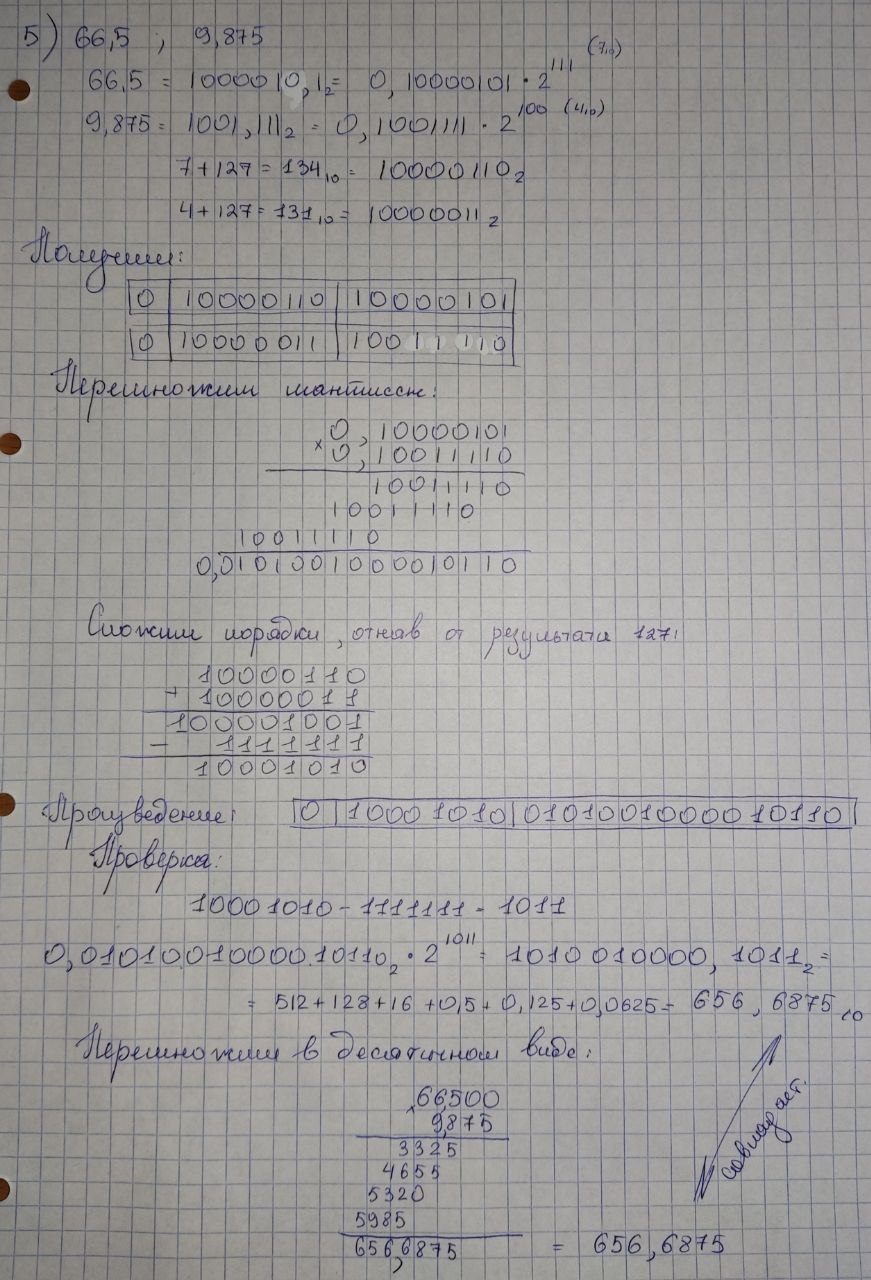 5) 66,5 ; 9,875
66,5 = 1000010,1₂ = 0,10000101 · 2¹¹¹ (7₁₀)
9,875 = 1001,111₂ = 0,1001111 · 2¹⁰⁰ (4₁₀)
7 + 127 = 134₁₀ = 10000110₂
4 + 127 = 131₁₀ = 10000011₂
Получим:
0 | 10000110 | 10000101
0 | 10000011 | 10011110
Перемножим мантиссы:
0,10000101
× 0,10011110
10011110
10011110
10011110
0,0101001000010110
Сложим порядки, отняв от результата 127:
10000110
+ 10000011
100001001
− 1111111
10001010
Произведение: 0 | 10001010 | 0101001000010110
Проверка:
10001010 − 1111111 = 1011
0,0101001000010110₂ · 2¹⁰¹¹ = 1010010000,1011₂ =
= 512 + 128 + 16 + 0,5 + 0,125 + 0,0625 = 656,6875₁₀
Перемножим в десятичном виде:
× 66,500
9,875
3325
4655
5320
5985
656,6875 = 656,6875
совпадает.